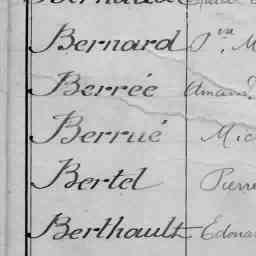 Bernard Pva. M
Berrée Amand
Berrué Mic
Bertel Pierre
Berthault Edoua